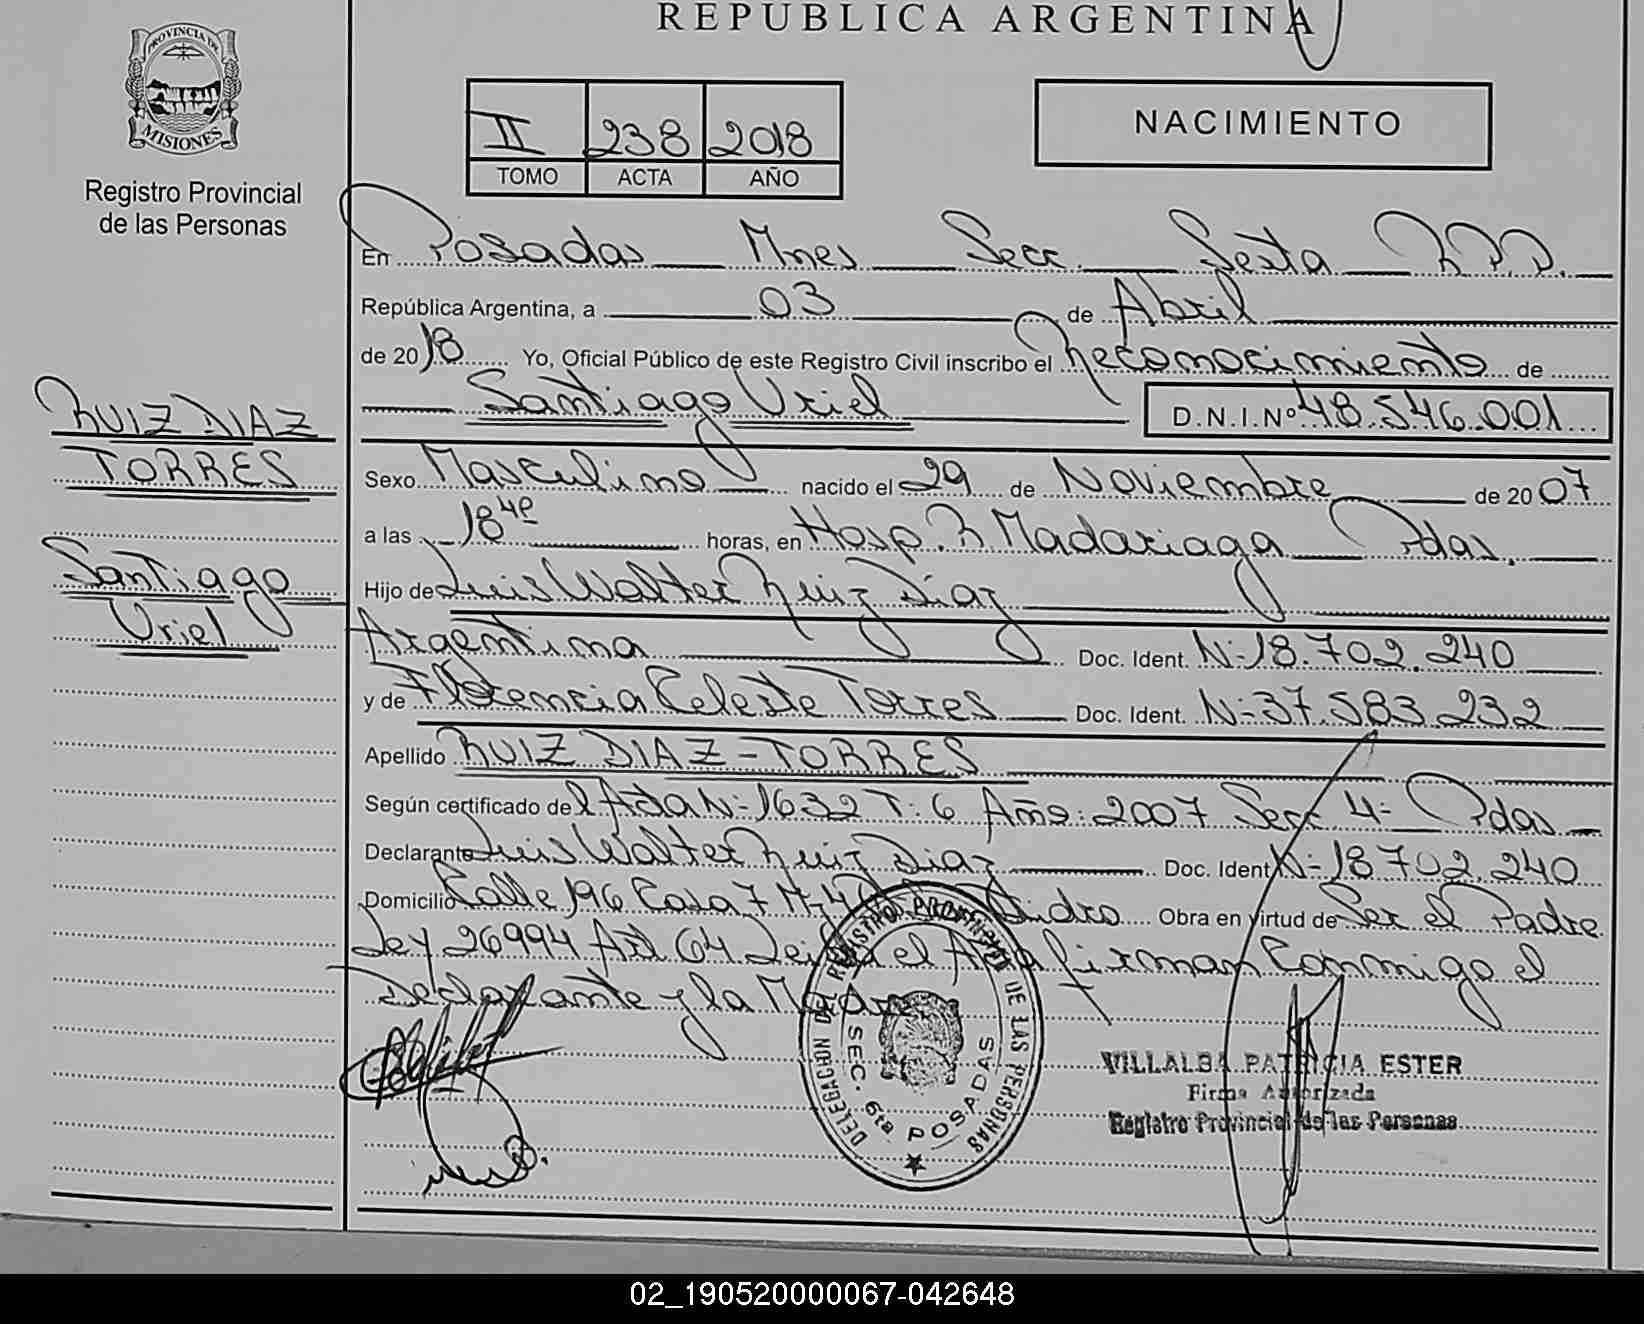 REPUBLICA ARGENTINA
PROVINCIA DE
MISIONES
Registro Provincial
de las Personas
II 238 2018
TOMO ACTA AÑO
NACIMIENTO
En Posadas Mnes Secc. Sexta R.P.P.
República Argentina, a 03 de Abril
de 2018 Yo, Oficial Público de este Registro Civil inscribo el Reconocimiento de
Santiago Uriel D.N.I.Nº 48.546.001
RUIZ DIAZ
TORRES
Santiago
Uriel
Sexo Masculino nacido el 29 de Noviembre de 2007
a las 18 horas, en Hosp. R Madariaga Pdas.
Hijo de Luis Walter Ruiz Díaz
Argentina Doc. Ident. N=18.702.240
y de Florencia Celeste Torres Doc. Ident. N=37.583.232
Apellido RUIZ DIAZ - TORRES
Según certificado del Acta N=1632 T: 6 Año: 2007 Secc 4= Pdas
Declarante Luis Walter Ruiz Diaz Doc. Ident N=18.702.240
Domicilio Calle 196 Casa 7 Obra en virtud de Ser el Padre
Ley 26994 Art. 64 Leida el Acta firman Conmigo el
Declarante y la Madre
DELEGACION DEL REGISTRO PROVINCIAL DE LAS PERSONAS
SEC. 6ta POSADAS
VILLALBA PATRICIA ESTER
Firma Autorizada
Registro Provincial de las Personas
02_190520000067-042648